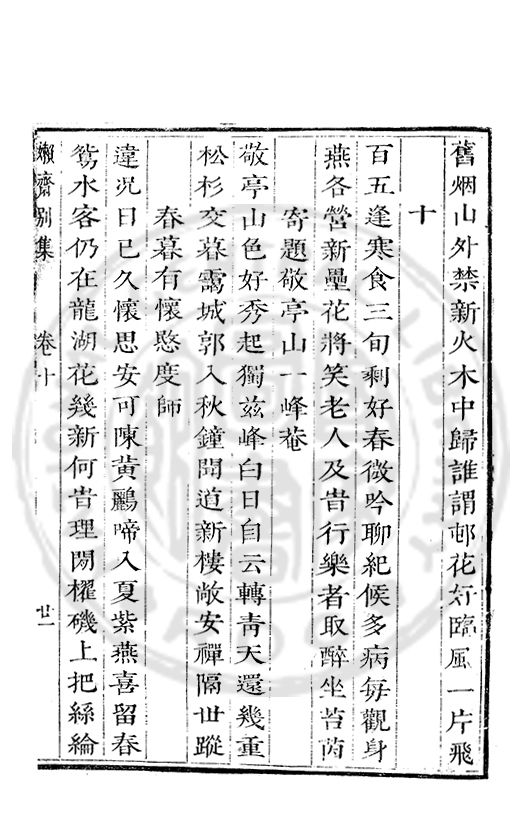 舊烟山外禁新火木中歸誰謂邨花好臨風一片飛
十
百五逢寒食三旬剩好春微吟聊紀候多病每觀身
燕各營新壘花將笑老人及昔行樂者取醉坐苔茵
寄題敬亭山一峰菴
敬亭山色好秀起獨茲峰白日自云轉靑天還幾重
松杉交暮靄城郭入秋鐘聞道新樓敞安禪隔世蹤
春暮有懷愍度師
違況日已久懷思安可陳黃鸝啼入夏紫燕喜留春
鴛水客仍在龍湖花幾新何昔理閑櫂磯上把絲綸
嬾齋別集
卷十
廿一